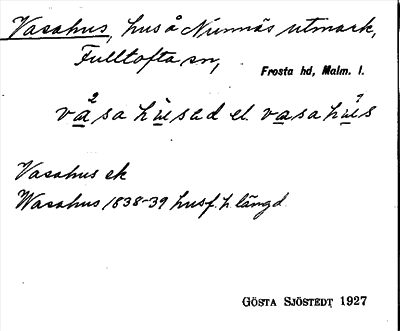 Vasahus, hus å Nunnäs utmark,
Fulltofta sn,
Frosta hd, Malm. l.
va²sa hu̇sad el. vasa hu̇¹s
Vasahus ek
Wasahus 1838-39 husf. h. längd
GÖSTA SJÖSTEDT 1927